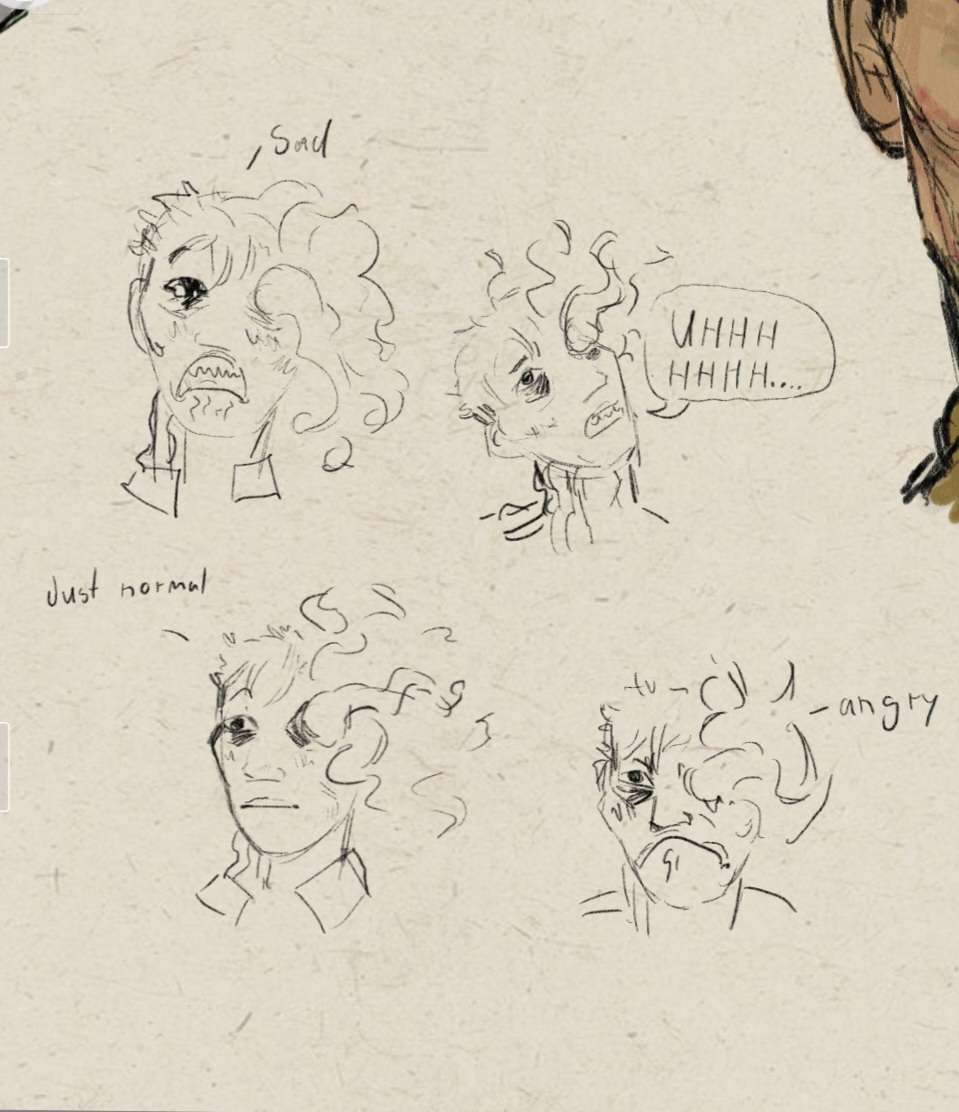 , Sad
UHHH
HHHH....
Just normal
- angry